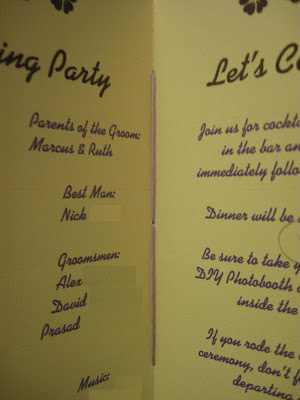 ing Party
Parents of the Groom:
Marcus & Ruth
Best Man:
Nick
Groomsmen:
Alex
David
Prasad
Music:
Let's Co
Join us for cockta
in the bar an
immediately follo
Dinner will be
Be sure to take y
DIY Photobooth
inside the
If you rode the
ceremony, don't f
departing